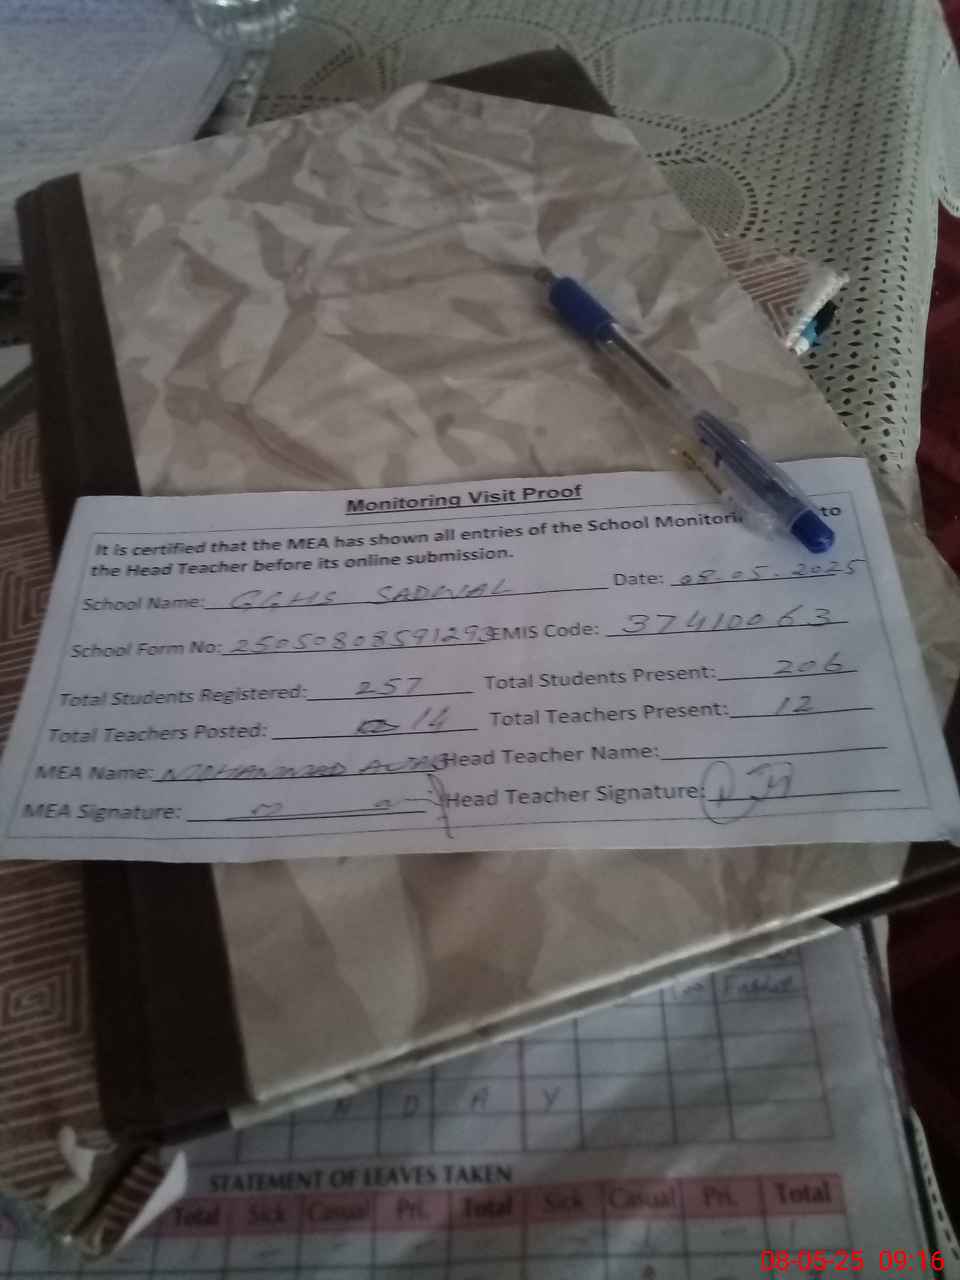 Monitoring Visit Proof
It is certified that the MEA has shown all entries of the School Monitori to
the Head Teacher before its online submission.
School Name: GGHS SADWAL Date: 08.05.2025
School Form No: 25050808591293 EMIS Code: 37410063
Total Students Registered: 257 Total Students Present: 206
Total Teachers Posted: 14 Total Teachers Present: 12
MEA Name: MOHAMMAD Head Teacher Name:
MEA Signature: Head Teacher Signature:
N D A Y
STATEMENT OF LEAVES TAKEN
Total Sick Casual Pri. Total Sick Casual Pri. Total
08-05-25 09:16